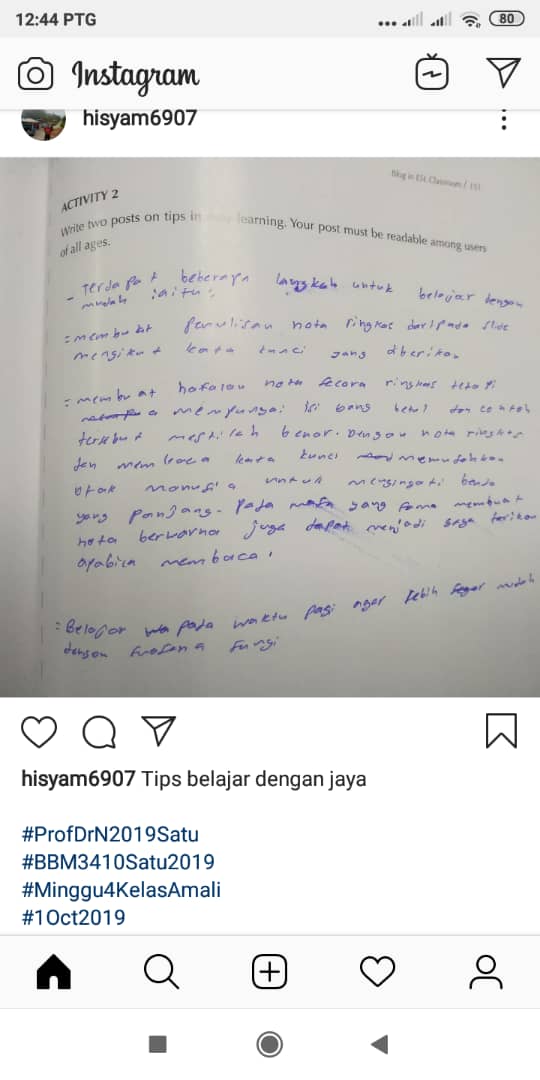 12:44 PTG
80
Instagram
hisyam6907
Blog in ESL Classroom / 151
ACTIVITY 2
Write two posts on tips in learning. Your post must be readable among users
of all ages.
- Terdapat beberapa langkah untuk belajar dengan
mudah iaitu:
= membuat penulisan nota ringkas daripada slide
mengikut kata kunci yang diberikan
= membuat hafalan nota secara ringkas tetapi
mempunyai isi yang betul dan contoh
tersebut mestilah benar. Dengan nota ringkas
dan membaca kata kunci memudahkan
otak manusia untuk mengingati benda
yang panjang. Pada masa yang sama membuat
nota berwarna juga dapat menjadi saya tarikan
apabila membaca.
= Belajar pada waktu pagi agar lebih segar mudah
dengan suasana sungi
hisyam6907 Tips belajar dengan jaya
#ProfDrN2019Satu
#BBM3410Satu2019
#Minggu4KelasAmali
#1Oct2019